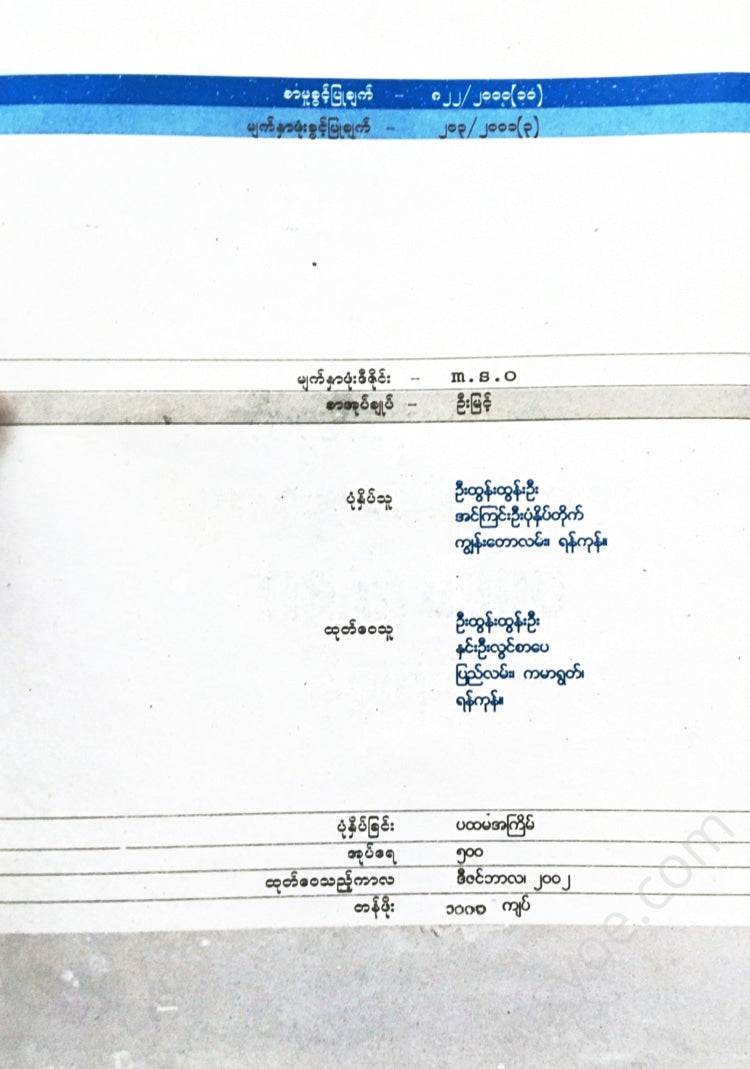 စာမူခွင့်ပြုချက် - ၈၂၂/၂၀၀၁(၁၁)
မျက်နှာဖုံးခွင့်ပြုချက် - ၂၀၃/၂၀၀၁(၃)
မျက်နှာဖုံးဒီဇိုင်း - m.s.o
စာအုပ်ချုပ် - ဦးမြင့်
ပုံနှိပ်သူ ဦးထွန်းထွန်းဦး
အင်ကြင်းဦးပုံနှိပ်တိုက်
ကျွန်းတောလမ်း၊ ရန်ကုန်။
ထုတ်ဝေသူ ဦးထွန်းထွန်းဦး
နှင်းဦးလွင်စာပေ
ပြည်လမ်း၊ ကမာရွတ်၊
ရန်ကုန်။
ပုံနှိပ်ခြင်း ပထမအကြိမ်
အုပ်ရေ ၅၀၀
ထုတ်ဝေသည့်ကာလ ဒီဇင်ဘာလ၊ ၂၀၀၂
တန်ဖိုး ကျပ်
yoe.com